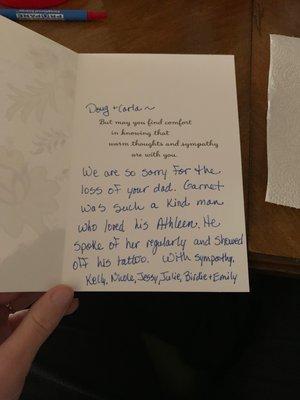 Doug + Carla ~
But may you find comfort
in knowing that
warm thoughts and sympathy
are with you.
We are so sorry for the
loss of your dad. Garnet
was such a kind man
who loved his Athleen. He
spoke of her regularly and showed
off his tattoo. With sympathy,
Kelly, Nicole, Jessy, Julie, Birdie + Emily